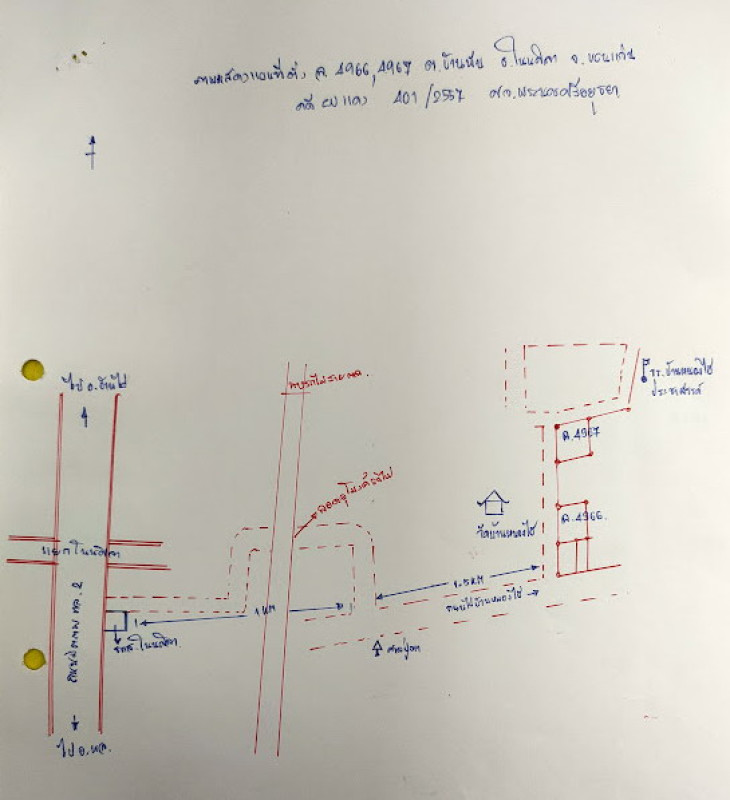 ตามแสดงแผนที่ตั้ง ฉ. 4966,4967 ต.บ้านหัน อ.โนนศิลา จ.ขอนแก่น
คดี ผบ แดง 401 /2557 ศจ.พระนครศรีอยุธยา
ไป อ.บ้านไผ่
ทางรถไฟ
รร.บ้านหนองไฮ
ประชาสรรค์
ฉ.4967
ลอดอุโมงค์รถไฟ
วัดบ้านหนองไฮ
ฉ.4966.
แยกโนนศิลา
1.5KM
ถนนมิตรภาพ ทล. 2
1 KM
ถนนไปบ้านหนองไฮ่ →
รพส.โนนศิลา
ศาลปู่ตา
ไป อ.พล.